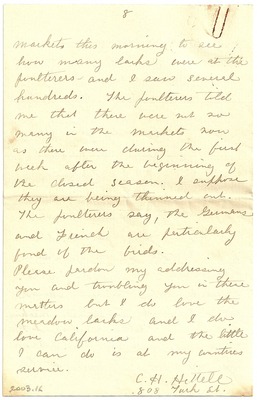 8
markets this morning to see
how many larks were at the
poulterers and I saw several
hundreds. The poulterers told
me that there were not so
many in the markets now
as there were during the first
week after the beginning of
the closed season. I suppose
they are being thinned out.
The poulterers say, the Germans
and French are perticularly
fond of the birds.
Please pardon my addressing
you and troubling you in these
matters but I do love the
meadow larks and I do
love California and the little
I can do is at my countries
service.
C. H.
808 Turk St.
2003.16